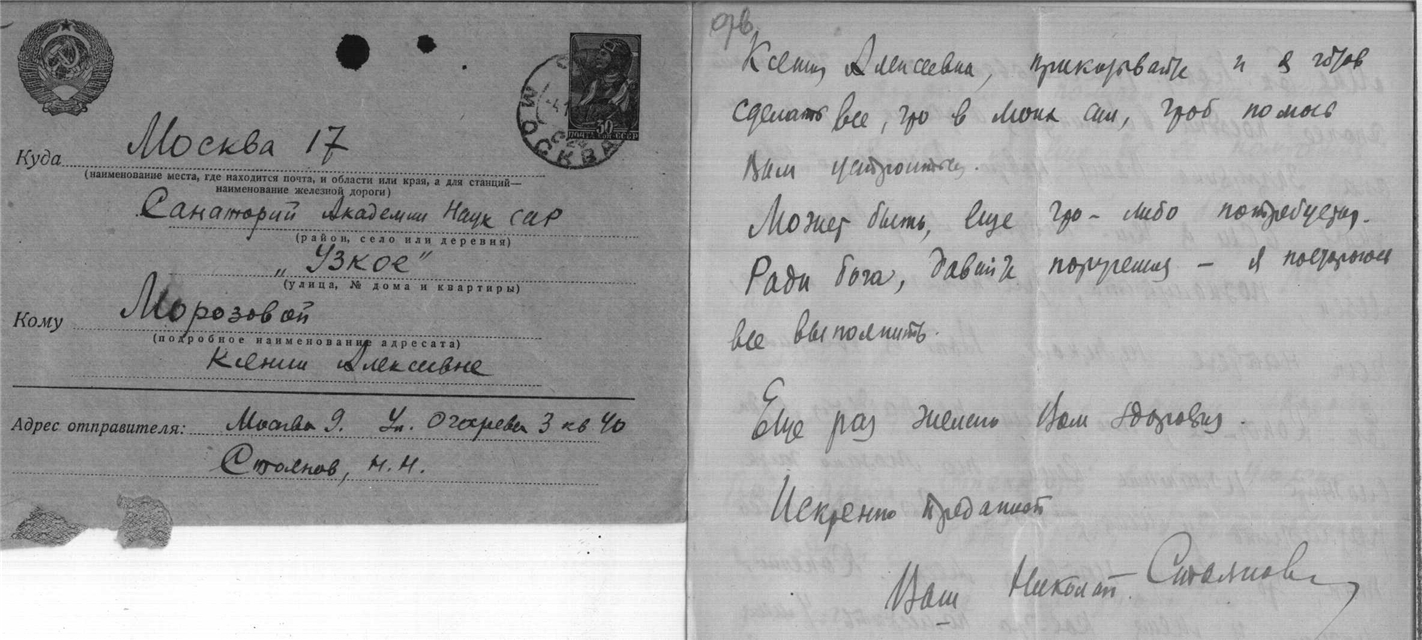 Куда Москва 17
(наименование места, где находится почта, и области или края, а для станций—
наименование железной дороги)
Санаторий Академии Наук СССР
(район, село или деревня)
„Узкое"
(улица, № дома и квартиры)
Кому Морозовой
(подробное наименование адресата)
Ксении Алексеевне
Адрес отправителя: Москва 9. Ул. Огарева 3 кв 40
Стоянов, Н. Н.
30
ПОЧТА СССР
МОСКВА
Ксения Алексеевна, приказывайте и я готов
сделать все, что в моих сил, чтоб помочь
Вам устроиться.
Может быть, еще что-либо потребуется.
Ради бога, давайте поручения – я постараюсь
все выполнить.
Еще раз желаю Вам здоровья.
Искренно преданный
Ваш Николай Стоянов